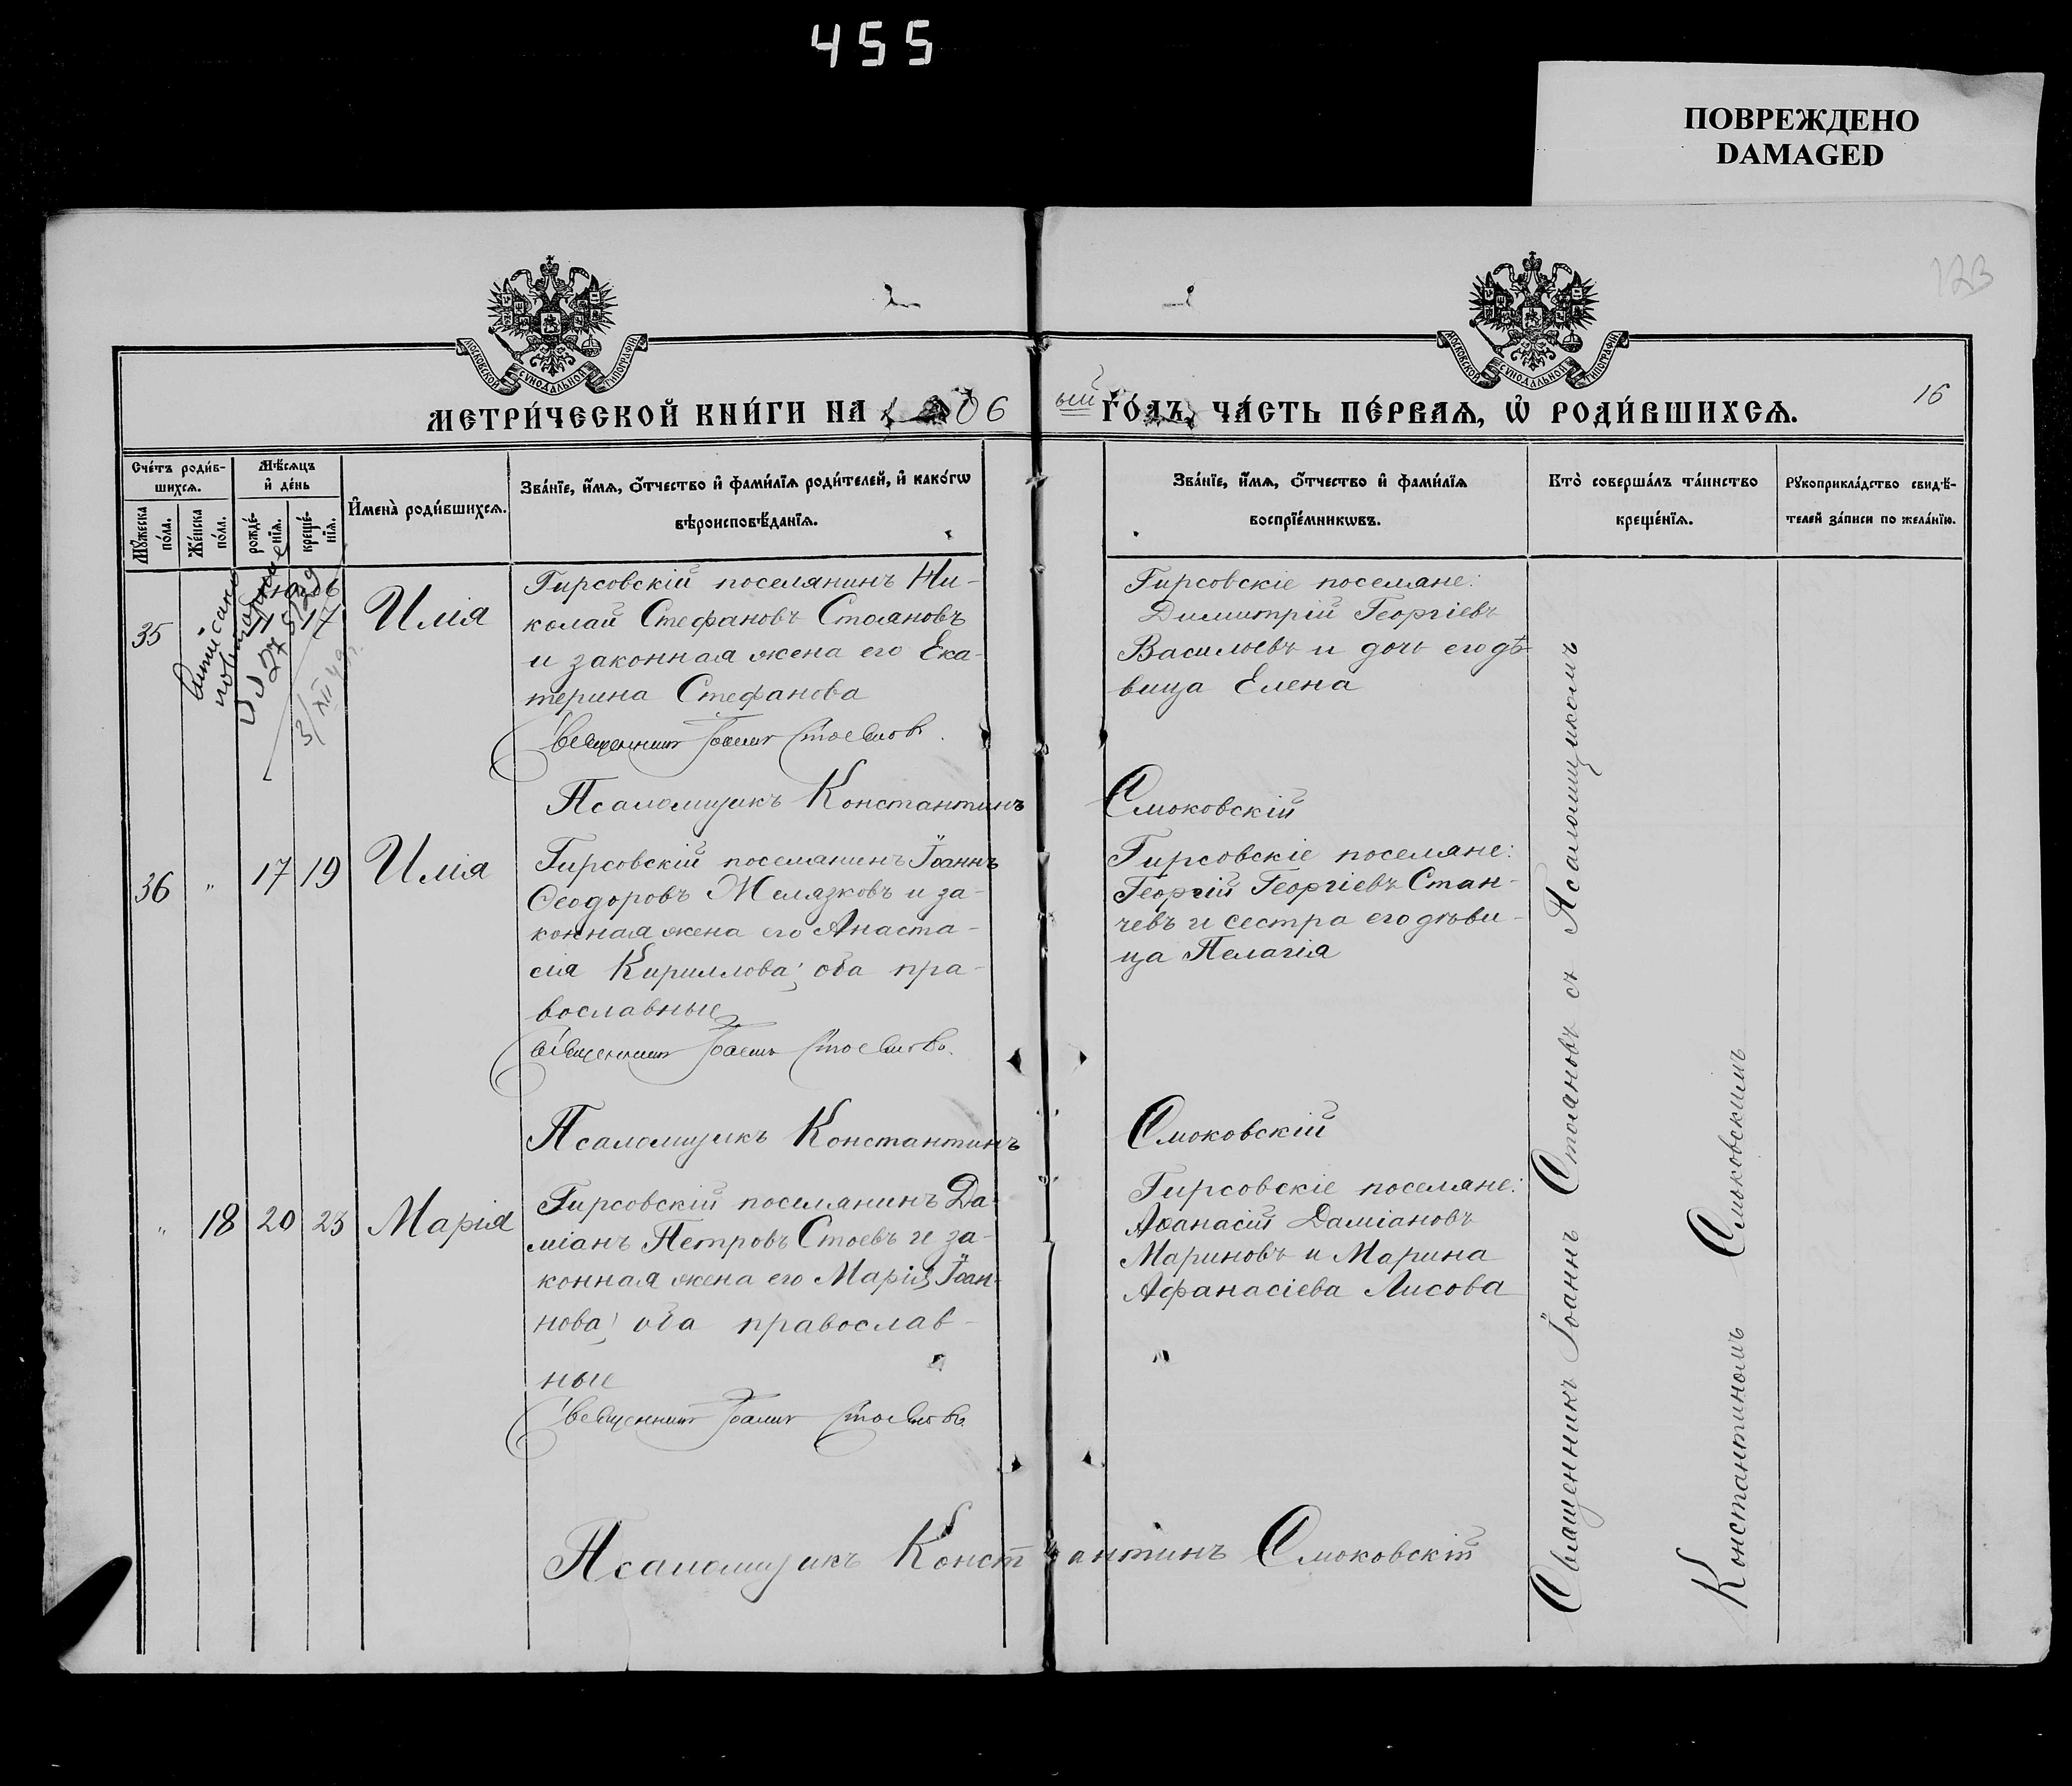 455
ПОВРЕЖДЕНО
DAMAGED
123
МОСКОВСКОЙ СѴНОДАЛЬНОЙ ТИПОГРАФІИ
МОСКОВСКОЙ СѴНОДАЛЬНОЙ ТИПОГРАФІИ
16
МЕТРИ́ЧЕСКОЙ КНИ́ГИ НА 1 06
ый ГО́ДЪ, ЧА́СТЬ ПЕ́РВАѦ, Ѽ РОДИ́ВШИХСѦ.
Сче́тъ роди́в-
шихсѧ.
Мѣ́сѧцъ
и҆ де́нь
Мꙋ́жеска
по́ла.
Же́нска
по́ла.
рожде́-
нїѧ.
креще́-
нїѧ.
И҆мена̀ роди́вшихсѧ.
Зва́нїе, и҆́мѧ, ѻ҆́тчество и҆ фами́лїѧ роди́телей, и҆ како́гѡ
вѣроисповѣ́данїѧ.
Зва́нїе, и҆́мѧ, ѻ҆́тчество и҆ фами́лїѧ
воспрїе́мникѡвъ.
Кто̀ соверша́лъ та́инство
креще́нїѧ.
Рꙋкоприкла́дство свидѣ́-
телей за́писи по жела́нїю.
35
17
Илія
Гирсовскій поселянинъ Ни-
колай Стефановъ Стояновъ
и законная жена его Ека-
терина Стефанова
Священникъ Іоаннъ Стояновъ.
Псаломщикъ Константинъ
Гирсовскіе поселяне:
Димитрій Георгіевъ
Васильевъ и дочь его дѣ-
вица Елена
Смоковскій
выписано
повторное
27
3/XII 49г.
36 " 17 19 Илія
Гирсовскій поселянинъ Іоаннъ
Ѳеодоровъ Желязковъ и за-
конная жена его Анаста-
сія Кириллова; оба пра-
вославные
Священникъ Іоаннъ Стояновъ.
Псаломщикъ Константинъ
Гирсовскіе поселяне:
Георгій Георгіевъ Стан-
чевъ и сестра его дѣви-
ца Пелагія
Смоковскій
" 18 20 23 Марія
Гирсовскій поселянинъ Да-
міанъ Петровъ Стоевъ и за-
конная жена его Марія Іоан-
нова; оба православ-
ные
Священникъ Іоаннъ Стояновъ
Гирсовскіе поселяне:
Аѳанасій Даміановъ
Мариновъ и Марина
Афанасіева Лисова
Псаломщикъ Константинъ Смоковскій
Священникъ Іоаннъ Стояновъ съ Псаломщикомъ
Константиномъ Смоковскимъ